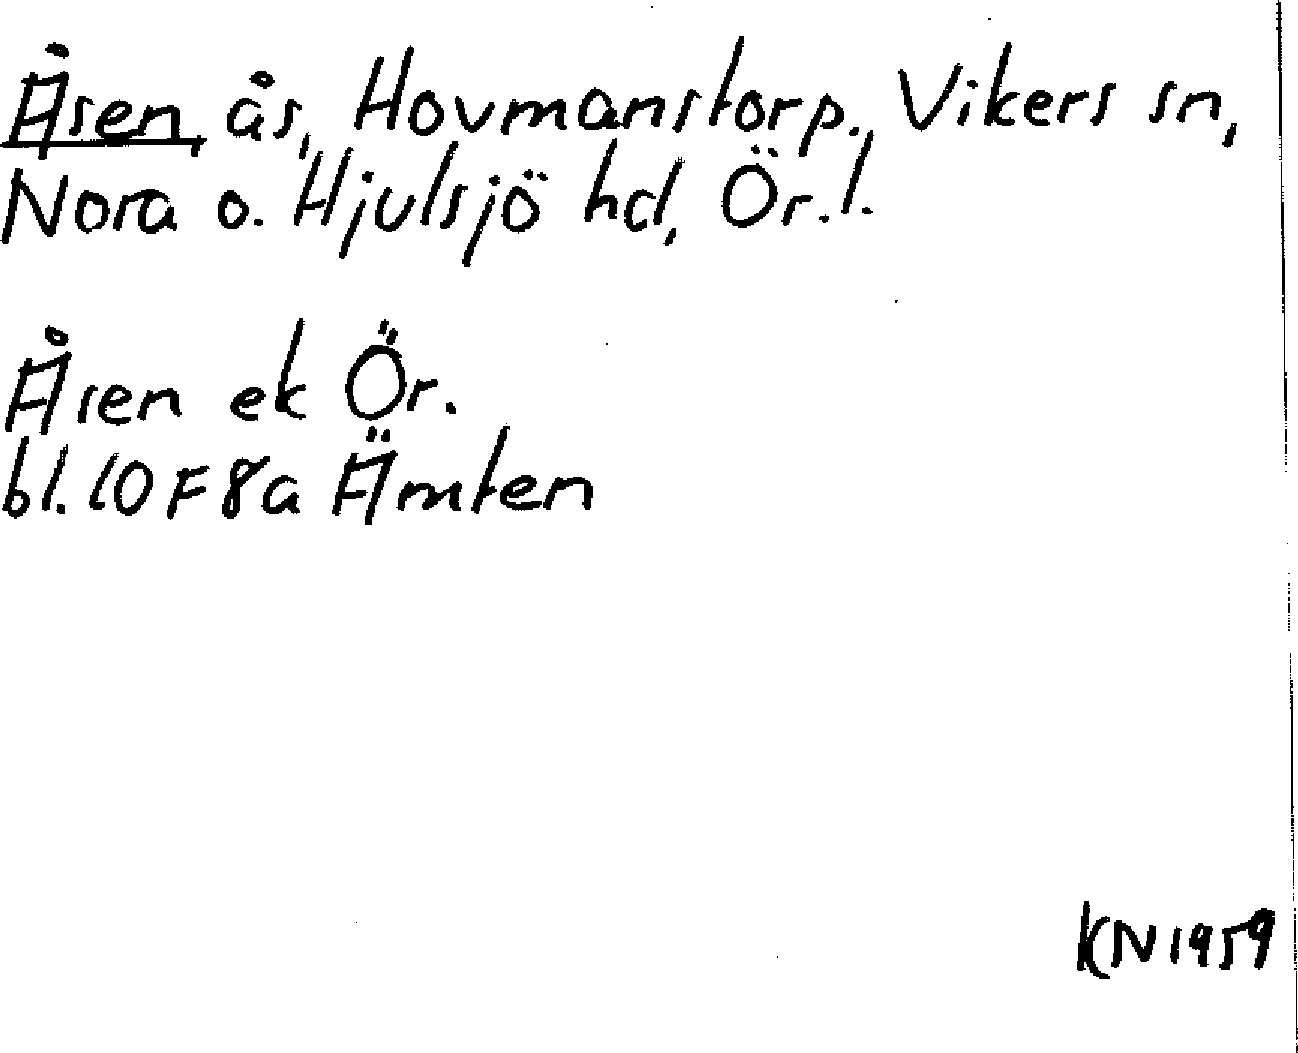 Åsen, ås, Hovmanstorp., Vikers sn,
Nora o. Hjulsjö hd, Ör.l.
Åsen ek Ör.
bl. 10F8a Ämten
KN1959